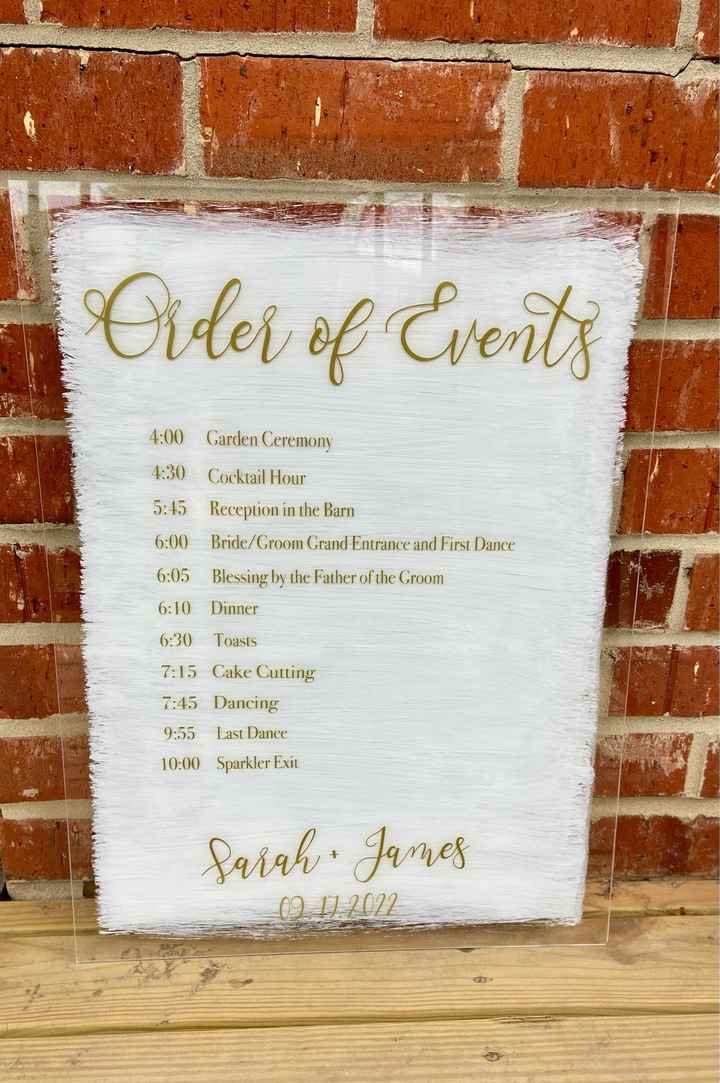 Order of Events
4:00 Garden Ceremony
4:30 Cocktail Hour
5:45 Reception in the Barn
6:00 Bride/Groom Grand Entrance and First Dance
6:05 Blessing by the Father of the Groom
6:10 Dinner
6:30 Toasts
7:15 Cake Cutting
7:45 Dancing
9:55 Last Dance
10:00 Sparkler Exit
Sarah + James
09.17.2022